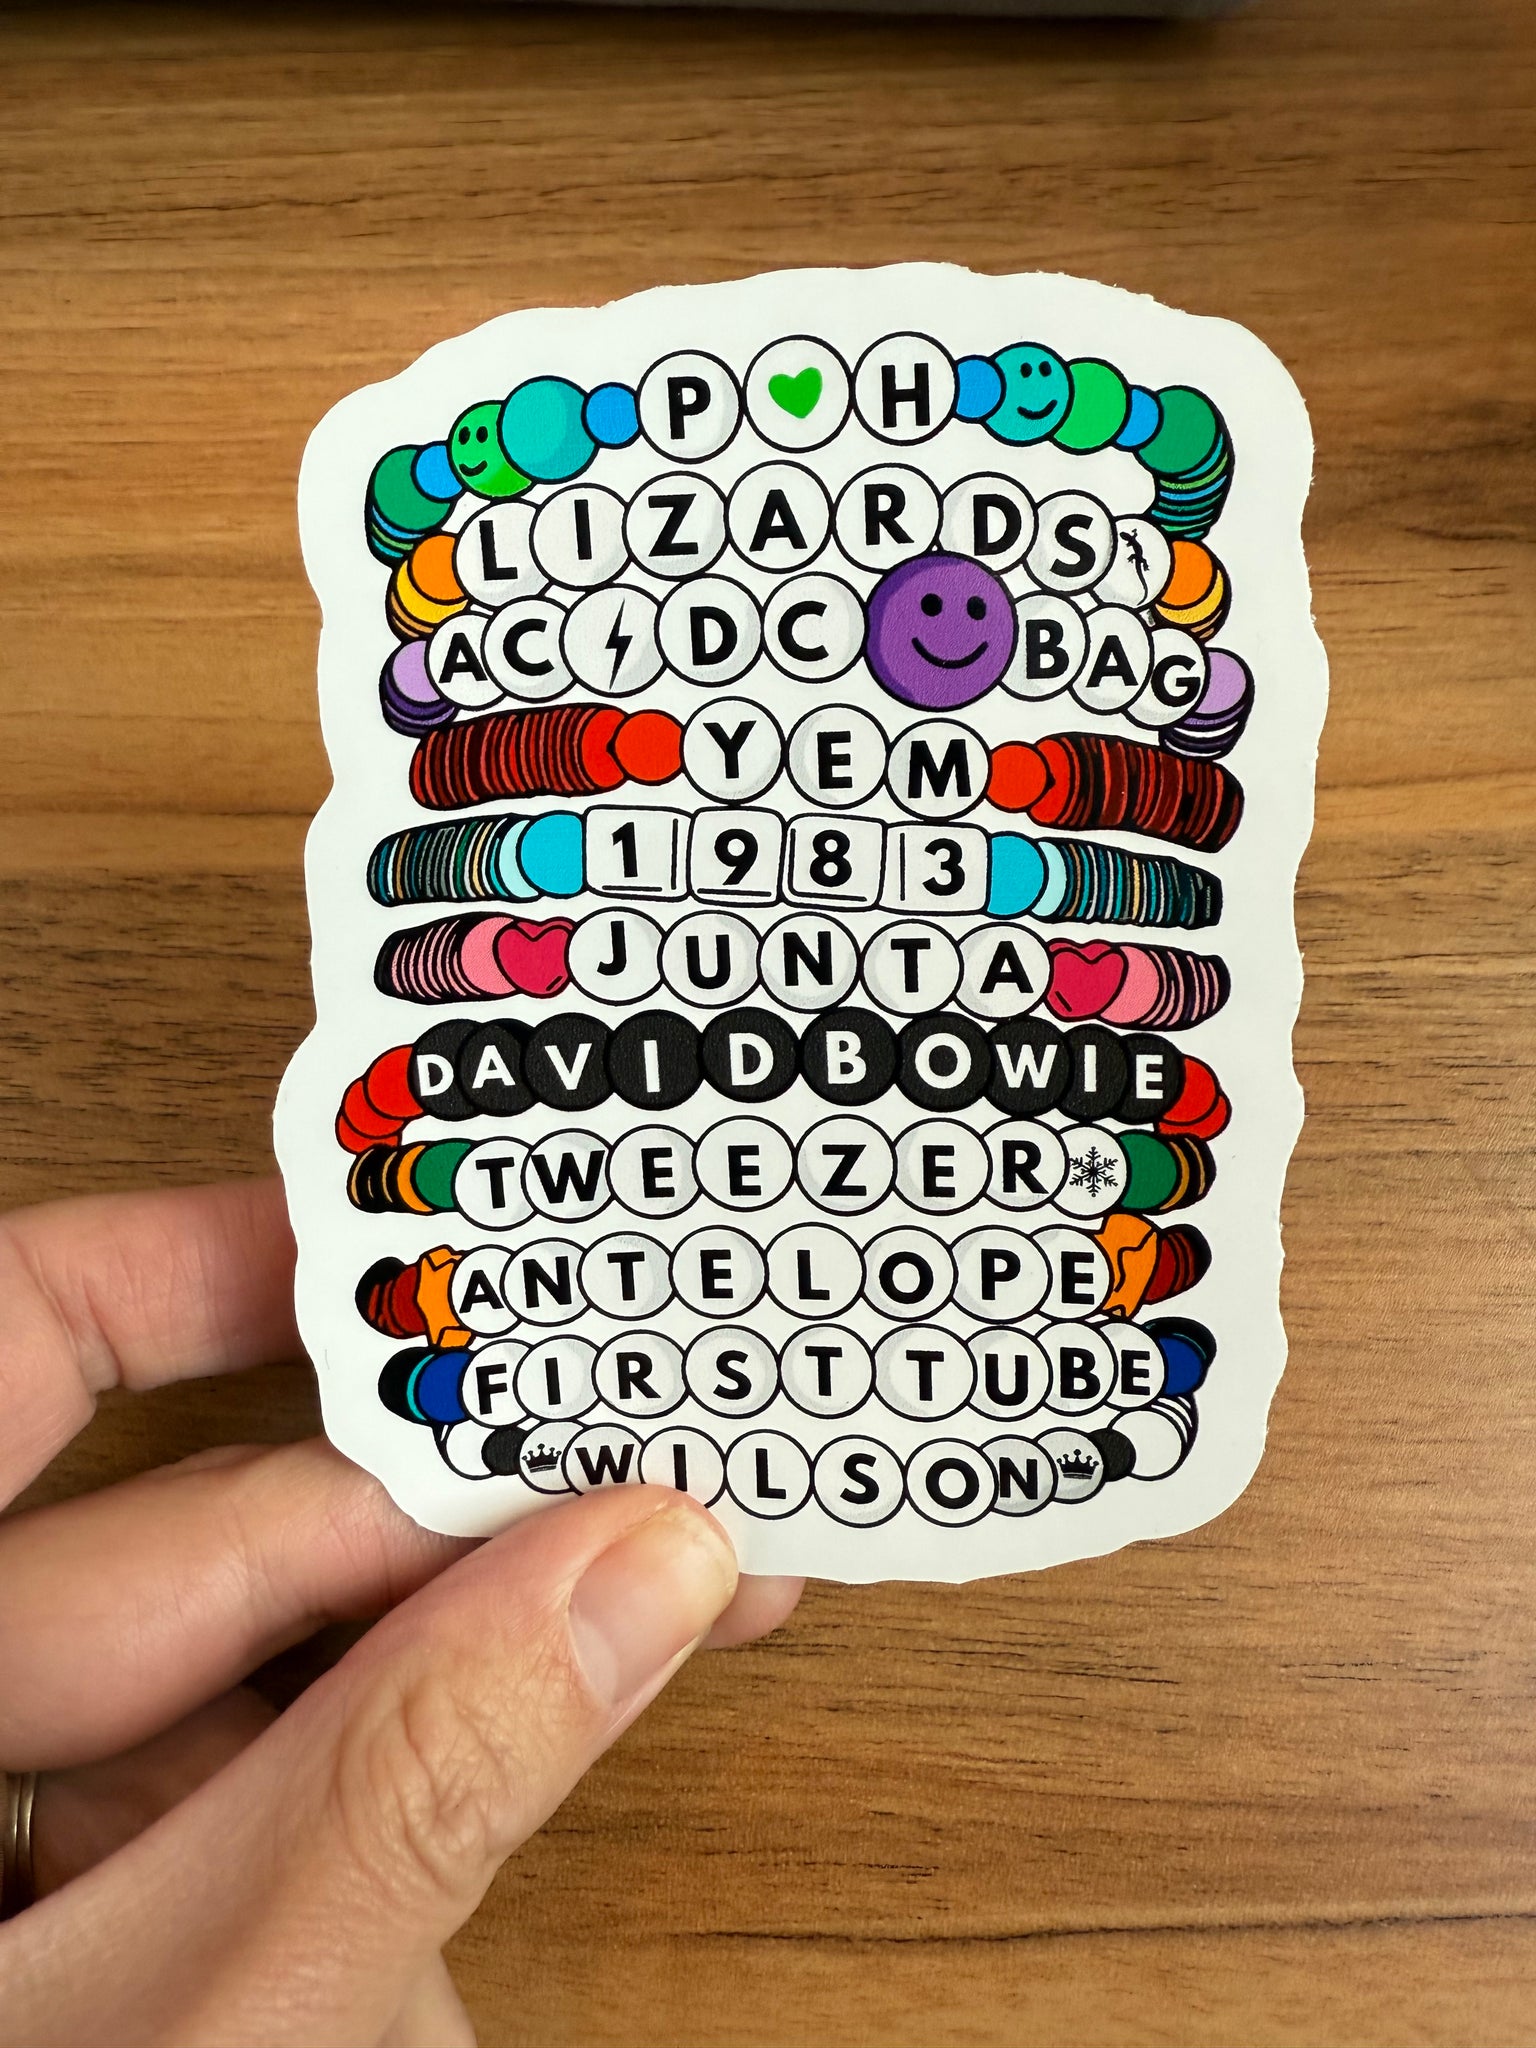 P H
LIZARDS
AC DC BAG
YEM
1983
JUNTA
DAVIDBOWIE
TWEEZER
ANTELOPE
FIRSTTUBE
WILSON